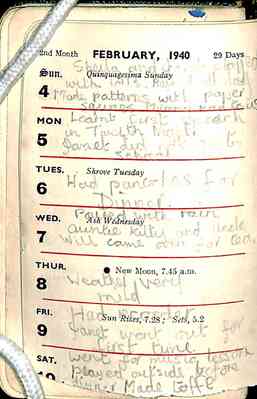 2nd Month FEBRUARY, 1940 29 Days
SUN. Quinquagesima Sunday
Sheila and I played
with
4 Made patterns with paper
MON Learnt first speech
5 in Twelfth Night.
Janet did not go to
school
TUES. Shrove Tuesday
6 Had pancakes for
Dinner.
WED. Ash Wednesday
Poured with rain
7 auntie Kitty and uncle
Will came over for tea.
THUR. ● New Moon, 7.45 a.m.
8 Weather very
mild
FRI. Had
9 Sun Rises, 7.28 ; Sets, 5.2
Janet went out for
first time
SAT. Went for music lesson
10 Played outside before
dinner Made toffee